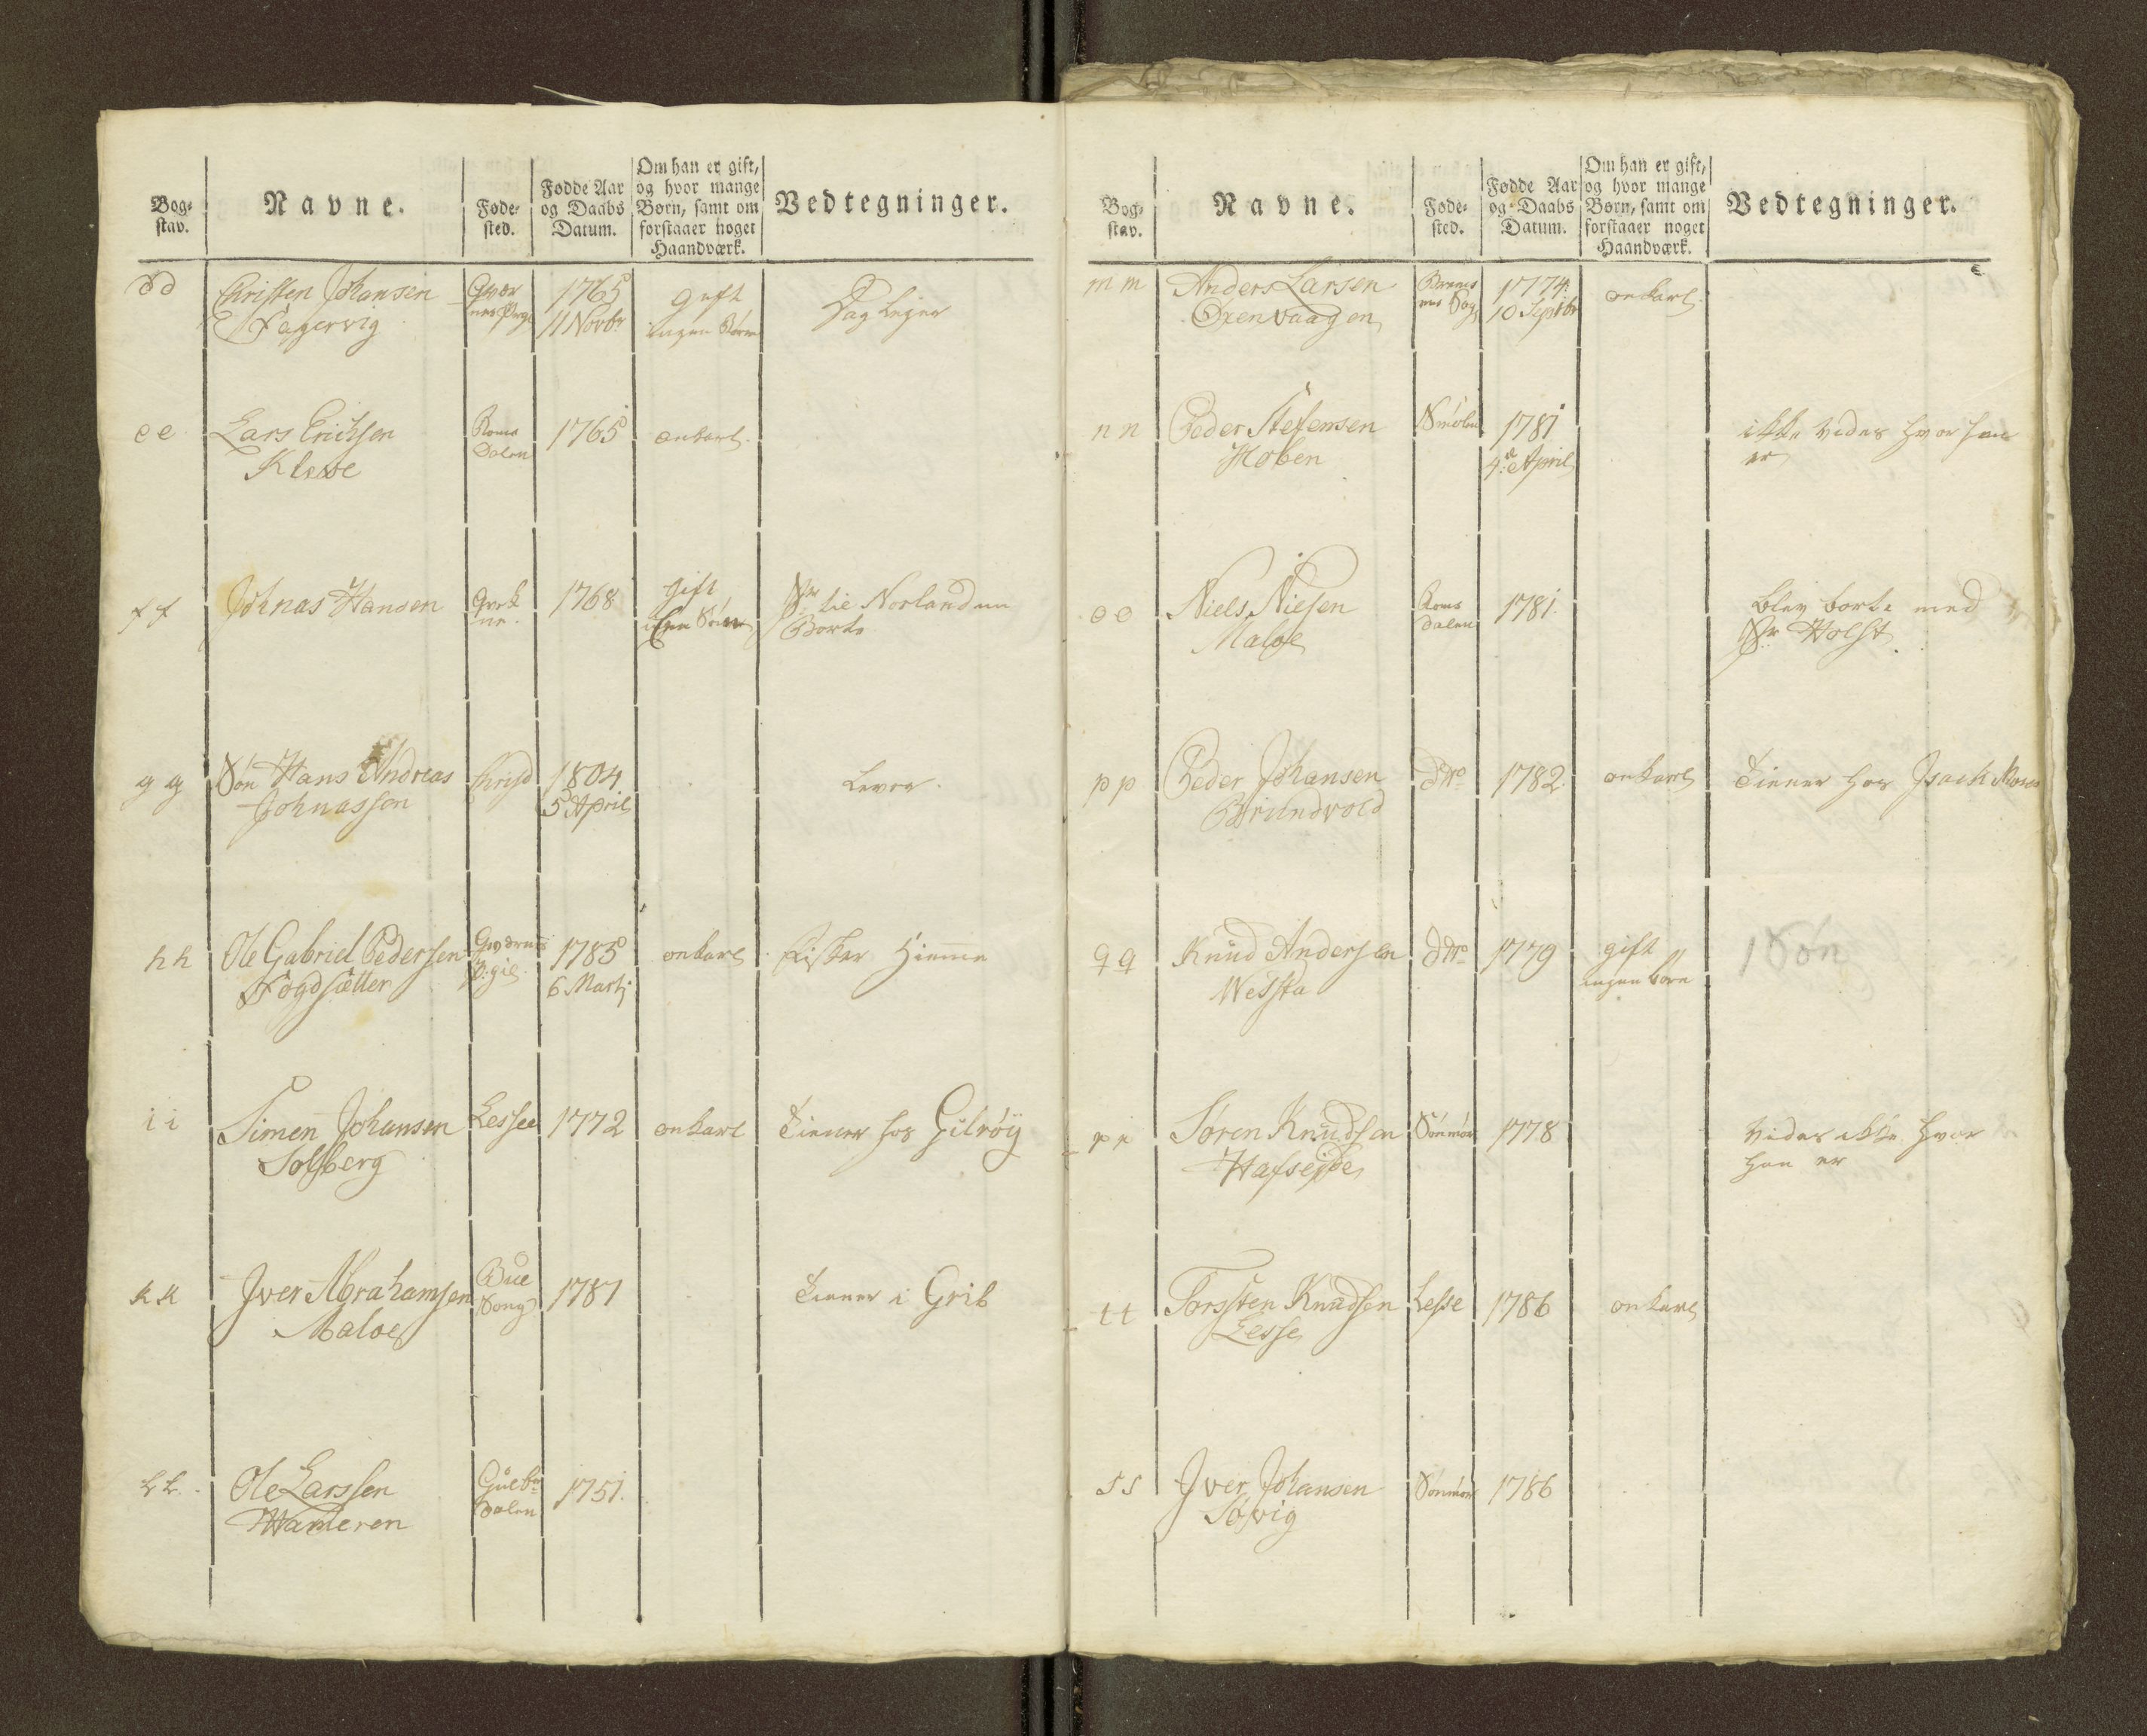 Bog-
stav.
Navne.
Føde-
sted.
Fødde Aar
og Daabs
Datum.
Om han er gift,
og hvor mange
Børn, samt om
forstaaer noget
Haandværk.
Vedtegninger.
dd
Christen Johansen
Fagervig
1765
11 Novbr
gift
ingen Børn
Dag Lejer
ee
Lars Erichsen
Kleve
Roms
dalen
1765
onkarl.
ff
Johnas Hansen
1768
gift
Norland
Borte
gg
Søn Hans Andreas
Johnassen
Christ
1804
5 April
Lever.
hh
Ole Gabriel Pedersen
Fogdsætter
1785
6 Martj
onkarl
Fisker Hieme
ii
Simen Johansen
Solsberg
Lessee
1772
onkarl
Tiener hos Gilrøÿ
kk
Iver Abrahamsen
Maloe
Bue
Song
1781
Tiener i Grib
Ole Larssen
Wameren
Gulb
dalen
1751.
Bog-
stav.
Navne.
Føde-
sted.
Fødde Aar
og Daabs
Datum.
Om han er gift,
og hvor mange
Børn, samt om
forstaaer noget
Haandværk.
Vedtegninger.
mm
Anders Larsen
Øxenvaagen
1774.
10 Septbr
onkarl.
nn
Peder Stefensen
Hoben
Smølen
1781
4de April
ikke vides hvor han
er
oo
Niels Nielsen
Maloe
Roms
dalen
1781.
blev borte med
Sr Holst.
pp
Peder Johansen
Brundvold
dto
1782.
onkarl
Tiener hos Isach Moses
qq
Knud Andersen
Wessta
dto
1779
gift
ingen børn
1 Søn
Søren Knudsen
Hafseide
Sønmør
1778
vides ikke hvor
han er
tt
Torssten Knudsen
Lesse
Lesse
1786
onkarl
ss
Iver Johansen
Søvig
Sønmør
1786